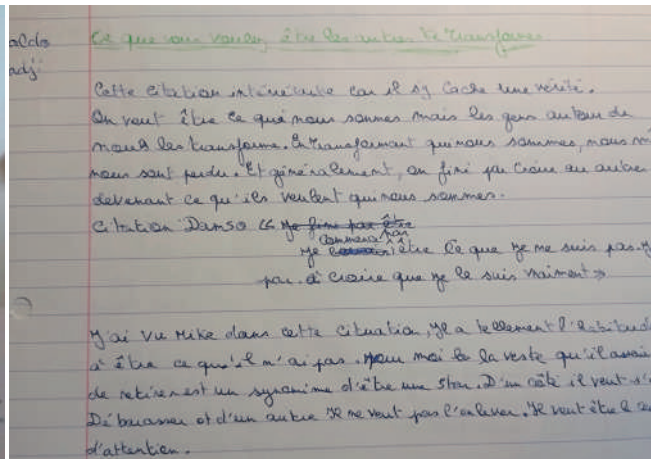 aldo
adji
Ce que vous voulez être les autres le transforme
Cette citation car il s'y cache une vérité.
On veut être ce que nous sommes mais les gens autour de
nous les transforme. En transformant qui nous sommes, nous
nous sont perdu. Et généralement, on fini par croire au autre
devenant ce qu'ils veulent qui nous sommes.
Citation Damso « Je fini par être
commence par
Je être ce que je ne suis pas. J
par à croire que je le suis vraiment »
J'ai vu Mike dans cette cituation, Il a tellement l'habitud
à être ce qu'il n'ai pas. Pour moi la veste qu'il avai
de retirer est un synonime d'être une star. D'un côté il veut s'
Débarasser et d'un autre Il ne veut pas l'enlever. Il veut être le
d'attention.